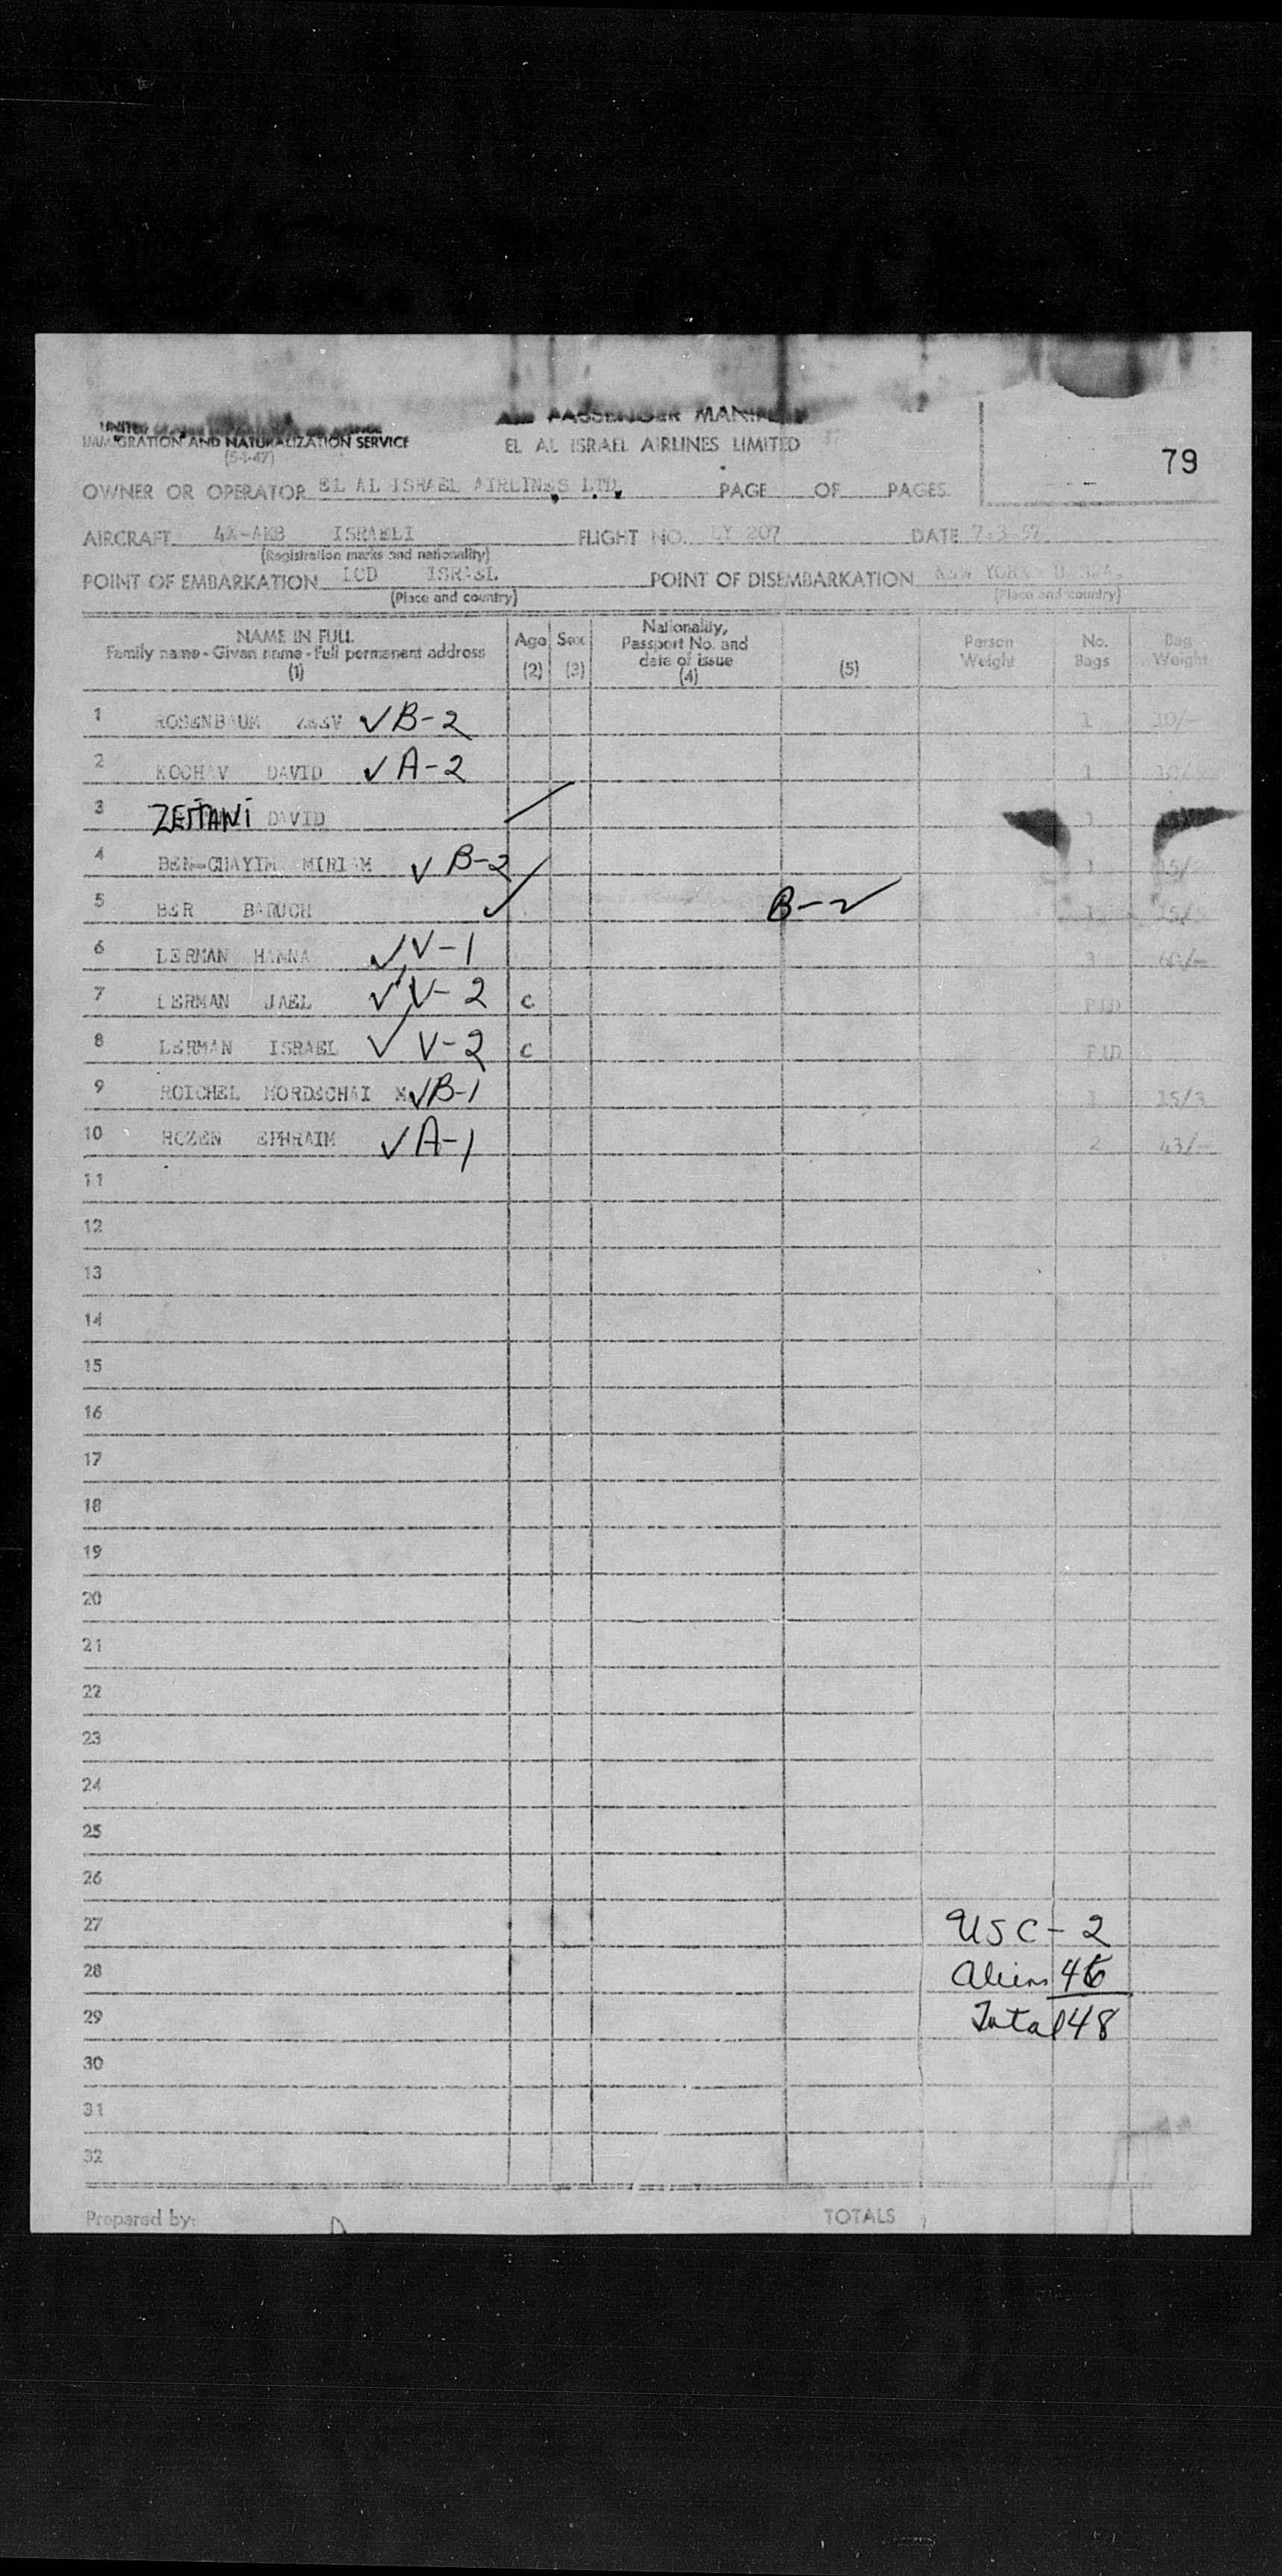 AIR PASSENGER MANIFEST
UNITED
IMMIGRATION AND NATURALIZATION SERVICE
(5-1-47)
EL AL ISRAEL AIRLINES LIMITED
79
OWNER OR OPERATOR EL AL ISRAEL AIRLINES LTD. PAGE OF PAGES
AIRCRAFT 4X-AKB ISRAELI FLIGHT NO. LY 207 DATE 7.3.52
(Registration marks and nationality)
POINT OF EMBARKATION LOD ISRAEL POINT OF DISEMBARKATION NEW YORK U.S.A.
(Place and country) (Place and country)
NAME IN FULL Age Sex Nationality, Person No. Bag
Family name - Given name - Full permanent address Passport No. and Weight Bags Weight
date of issue
(1) (2) (3) (4) (5)
1 ROSENBAUM ZEEV ✓ B-2 1 10/-
2 KOCHAV DAVID ✓ A-2 1
3 ZEITANI DAVID 1
4 BEN-CHAYIM MIRIAM ✓ B-2 1
5 BER BARUCH ✓ B-2 1
6 LERMAN HANNA ✓ V-1 3 60/-
7 LERMAN JAEL ✓ V-2 c
8 LERMAN ISRAEL ✓ V-2 c
9 ROICHEL MORDECHAI M ✓ B-1 1 15/3
10 ROZEN EPHRAIM ✓ A-1 2 43/-
11
12
13
14
15
16
17
18
19
20
21
22
23
24
25
26
27 USC - 2
28 Aliens 46
29 Total 48
30
31
32
Prepared by: TOTALS